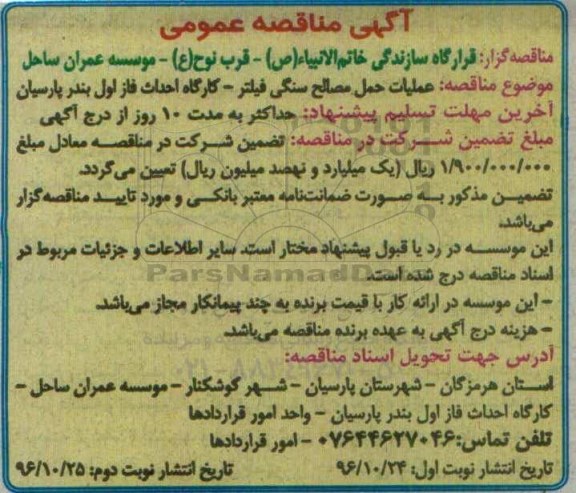 آگهی مناقصه عمومی
مناقصه‌گزار: قرارگاه سازندگی خاتم‌الانبیاء(ص) - قرب نوح(ع) - موسسه عمران ساحل
موضوع مناقصه: عملیات حمل مصالح سنگی فیلتر - کارگاه احداث فاز اول بندر پارسیان
آخرین مهلت تسلیم پیشنهاد: حداکثر به مدت ۱۰ روز از درج آگهی
مبلغ تضمین شرکت در مناقصه: تضمین شرکت در مناقصه معادل مبلغ
۱/۹۰۰/۰۰۰/۰۰۰ ریال (یک میلیارد و نهصد میلیون ریال) تعیین می‌گردد.
تضمین مذکور به صورت ضمانت‌نامه معتبر بانکی و مورد تایید مناقصه‌گزار
می‌باشد.
این موسسه در رد یا قبول پیشنهاد مختار است. سایر اطلاعات و جزئیات مربوط در
اسناد مناقصه درج شده است.
ParsNamadData
- این موسسه در ارائه کار با قیمت برنده به چند پیمانکار مجاز می‌باشد.
- هزینه درج آگهی به عهده برنده مناقصه می‌باشد.
آدرس جهت تحویل اسناد مناقصه:
استان هرمزگان - شهرستان پارسیان - شهر گوشکنار - موسسه عمران ساحل -
کارگاه احداث فاز اول بندر پارسیان - واحد امور قراردادها
تلفن تماس: ۰۷۶۴۴۶۲۷۰۴۶ - امور قراردادها
تاریخ انتشار نوبت اول: ۹۶/۱۰/۲۴ تاریخ انتشار نوبت دوم: ۹۶/۱۰/۲۵